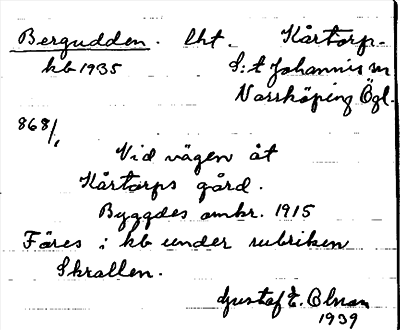 Bergudden. lht. Kårtorp.
kb 1935 S:t Johannis sn
Norrköping Ögl.
868/1
Vid vägen åt
Kårtorps gård.
Byggdes omkr. 1915
Föres i kb under rubriken
Skrallen.
Gustaf E. Olsson
1939